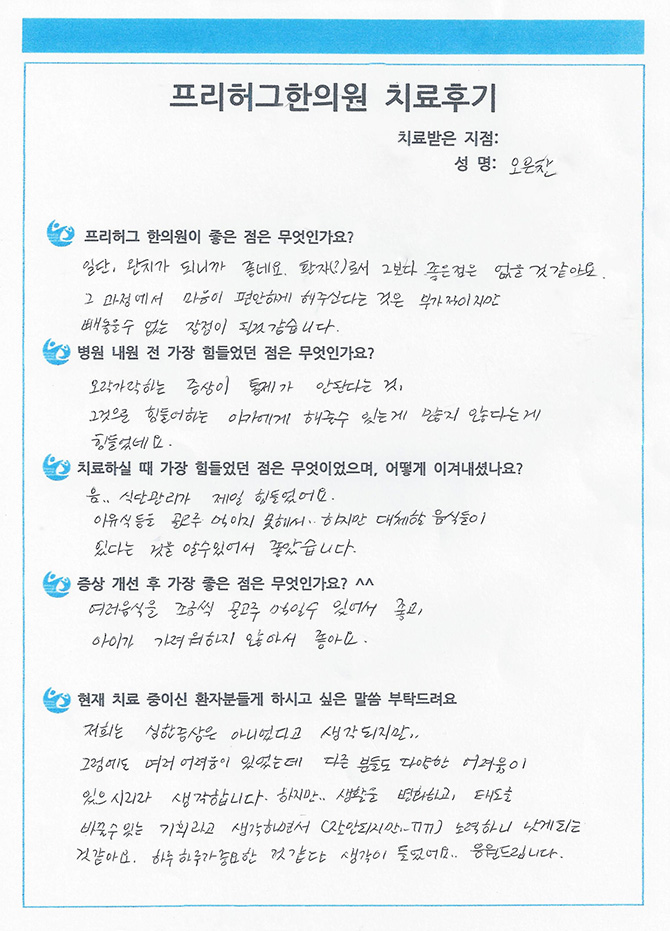 프리허그한의원 치료후기
치료받은 지점:
성 명: 오은찬
프리허그 한의원이 좋은 점은 무엇인가요?
일단, 완치가 되니까 좋네요. 환자(?)로서 그보다 좋은점은 없을 것 같아요.
그 과정에서 마음이 편안하게 해주신다는 것은 부가적이지만
빼놓을수 없는 장점이 될것 같습니다.
병원 내원 전 가장 힘들었던 점은 무엇인가요?
오락가락하는 증상이 통제가 안된다는 것,
그것으로 힘들어하는 아가에게 해줄수 있는게 많지 않다는게
힘들었네요.
치료하실 때 가장 힘들었던 점은 무엇이었으며, 어떻게 이겨내셨나요?
음.. 식단관리가 제일 힘들었어요.
이유식등을 골고루 먹이지 못해서.. 하지만 대체할 음식들이
있다는 것을 알수있어서 좋았습니다.
증상 개선 후 가장 좋은 점은 무엇인가요? ^^
여러음식을 조금씩 골고루 먹일수 있어서 좋고,
아이가 가려워하지 않아서 좋아요.
현재 치료 중이신 환자분들게 하시고 싶은 말씀 부탁드려요
저희는 심한증상은 아니었다고 생각되지만..
그럼에도 여러 어려움이 있었는데 다른 분들도 다양한 어려움이
있으시리라 생각합니다. 하지만.. 생활을 변화하고, 태도를
바꿀수있는 기회라고 생각하면서 (잘안되지만..ㅠㅠ) 노력하니 낫게되는
것같아요. 하루하루가 중요한 것 같단 생각이 들었어요.. 응원드립니다.